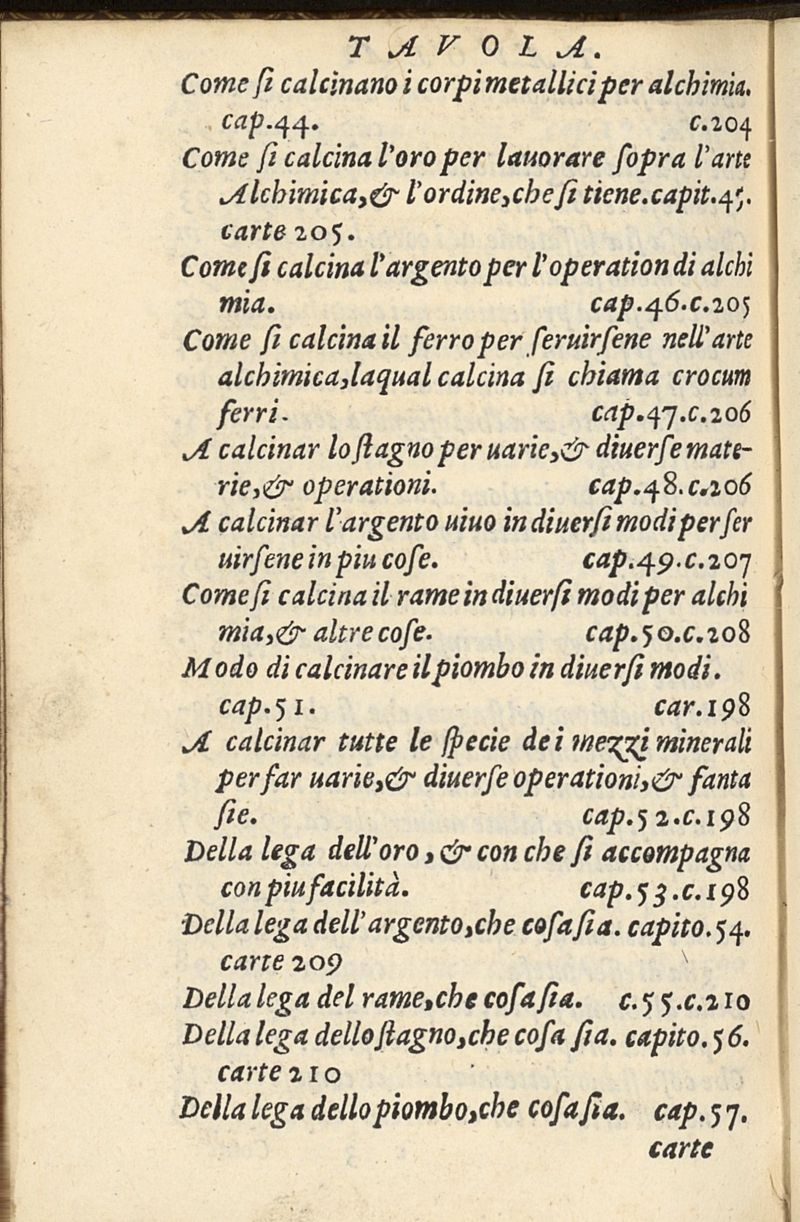 TAVOLA.
Come ſi calcinano i corpi metallici per alchimia.
cap.44. c.204
Come ſi calcina l'oro per lauorare ſopra l'arte
Alchimica,& l'ordine,che ſi tiene.capit.45.
carte 205.
Come ſi calcina l'argento per l'operation di alchi
mia. cap.46.c.205
Come ſi calcina il ferro per ſeruirſene nell'arte
alchimica,laqual calcina ſi chiama crocum
ferri. cap.47.c.206
A calcinar lo ſtagno per uarie,& diuerſe mate-
rie,& operationi. cap.48.c.206
A calcinar l'argento uiuo in diuerſi modi per ſer
uirſene in piu coſe. cap.49.c.207
Come ſi calcina il rame in diuerſi modi per alchi
mia,& altre coſe. cap.50.c.208
Modo di calcinare il piombo in diuerſi modi.
cap.51. car.198
A calcinar tutte le ſpecie de i mezzi minerali
per far uarie,& diuerſe operationi,& fanta
ſie. cap.52.c.198
Della lega dell'oro, & con che ſi accompagna
con piu facilità. cap.53.c.198
Della lega dell'argento,che coſa ſia. capito.54.
carte 209
Della lega del rame,che coſa ſia. c.55.c.210
Della lega dello ſtagno,che coſa ſia. capito.56.
carte 210
Della lega dello piombo,che coſa ſia. cap.57.
carte